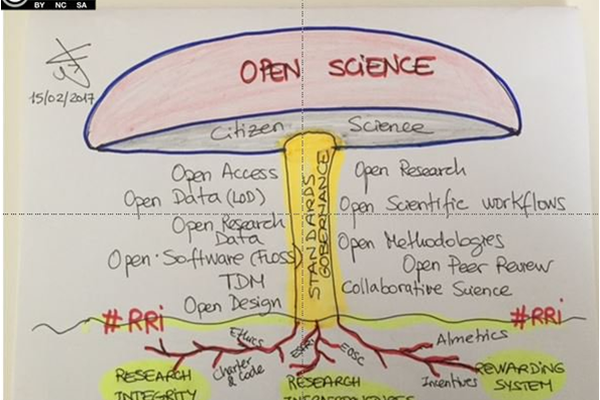 BY NC SA
15/02/2017
OPEN SCIENCE
Citizen Science
STANDARDS
GOBERNANCE
Open Access
Open Data (LOD)
Open Research
Data
Open Software (FLOSS)
TDM
Open Design
Open Research
Open Scientific workflows
Open Methodologies
Open Peer Review
Collaborative Science
#RRi
#RRi
Ethics
Charter
& Code
ESFRI
EOSC
Almetrics
Incentives
RESEARCH
INTEGRITY
RESEARCH
REWARDING
SYSTEM